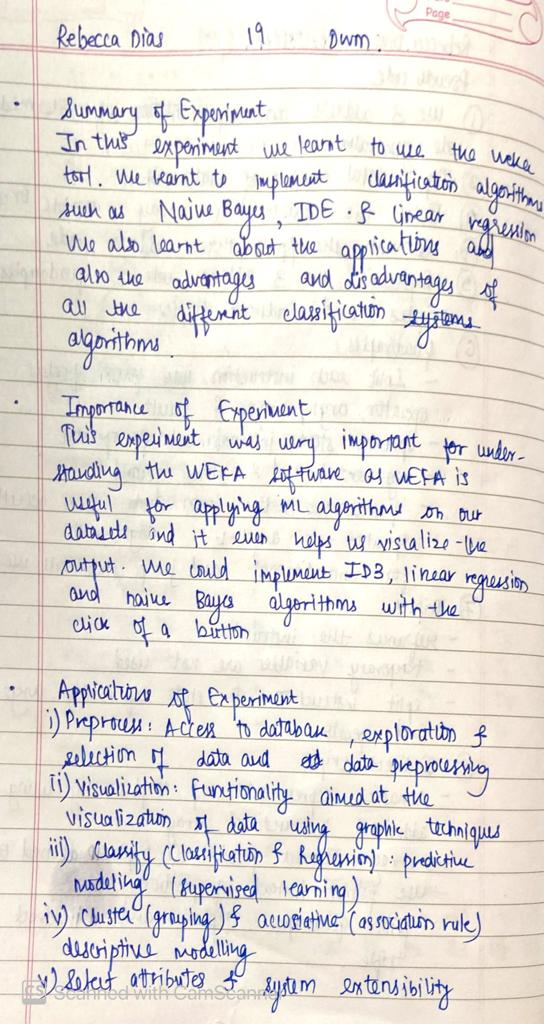 Page
Rebecca Dias 19 DWM.
• Summary of Experiment
In this experiment we learnt to use the weka
tool. We learnt to implement classification algorithms
such as Naive Bayes, IDE & linear regression
We also learnt about the applications and
also the advantages and disadvantages of
all the different classification systems
algorithms.
• Importance of Experiment
This experiment was very important for under-
standing the WEKA software as WEKA is
useful for applying ML algorithms on our
datasets and it even helps us visualize the
output. We could implement ID3, linear regression
and naive Bayes algorithms with the
click of a button
• Applications of Experiment
i) Preprocess: Access to database, exploration &
selection of data and data preprocessing
ii) Visualization: Functionality aimed at the
visualization of data using graphic techniques
iii) Classify (Classification & Regression): predictive
modeling (supervised learning)
iv) Cluster (grouping) & accosiative (association rule)
descriptive modelling
v) Select attributes & system extensibility
CS Scanned with CamScanner